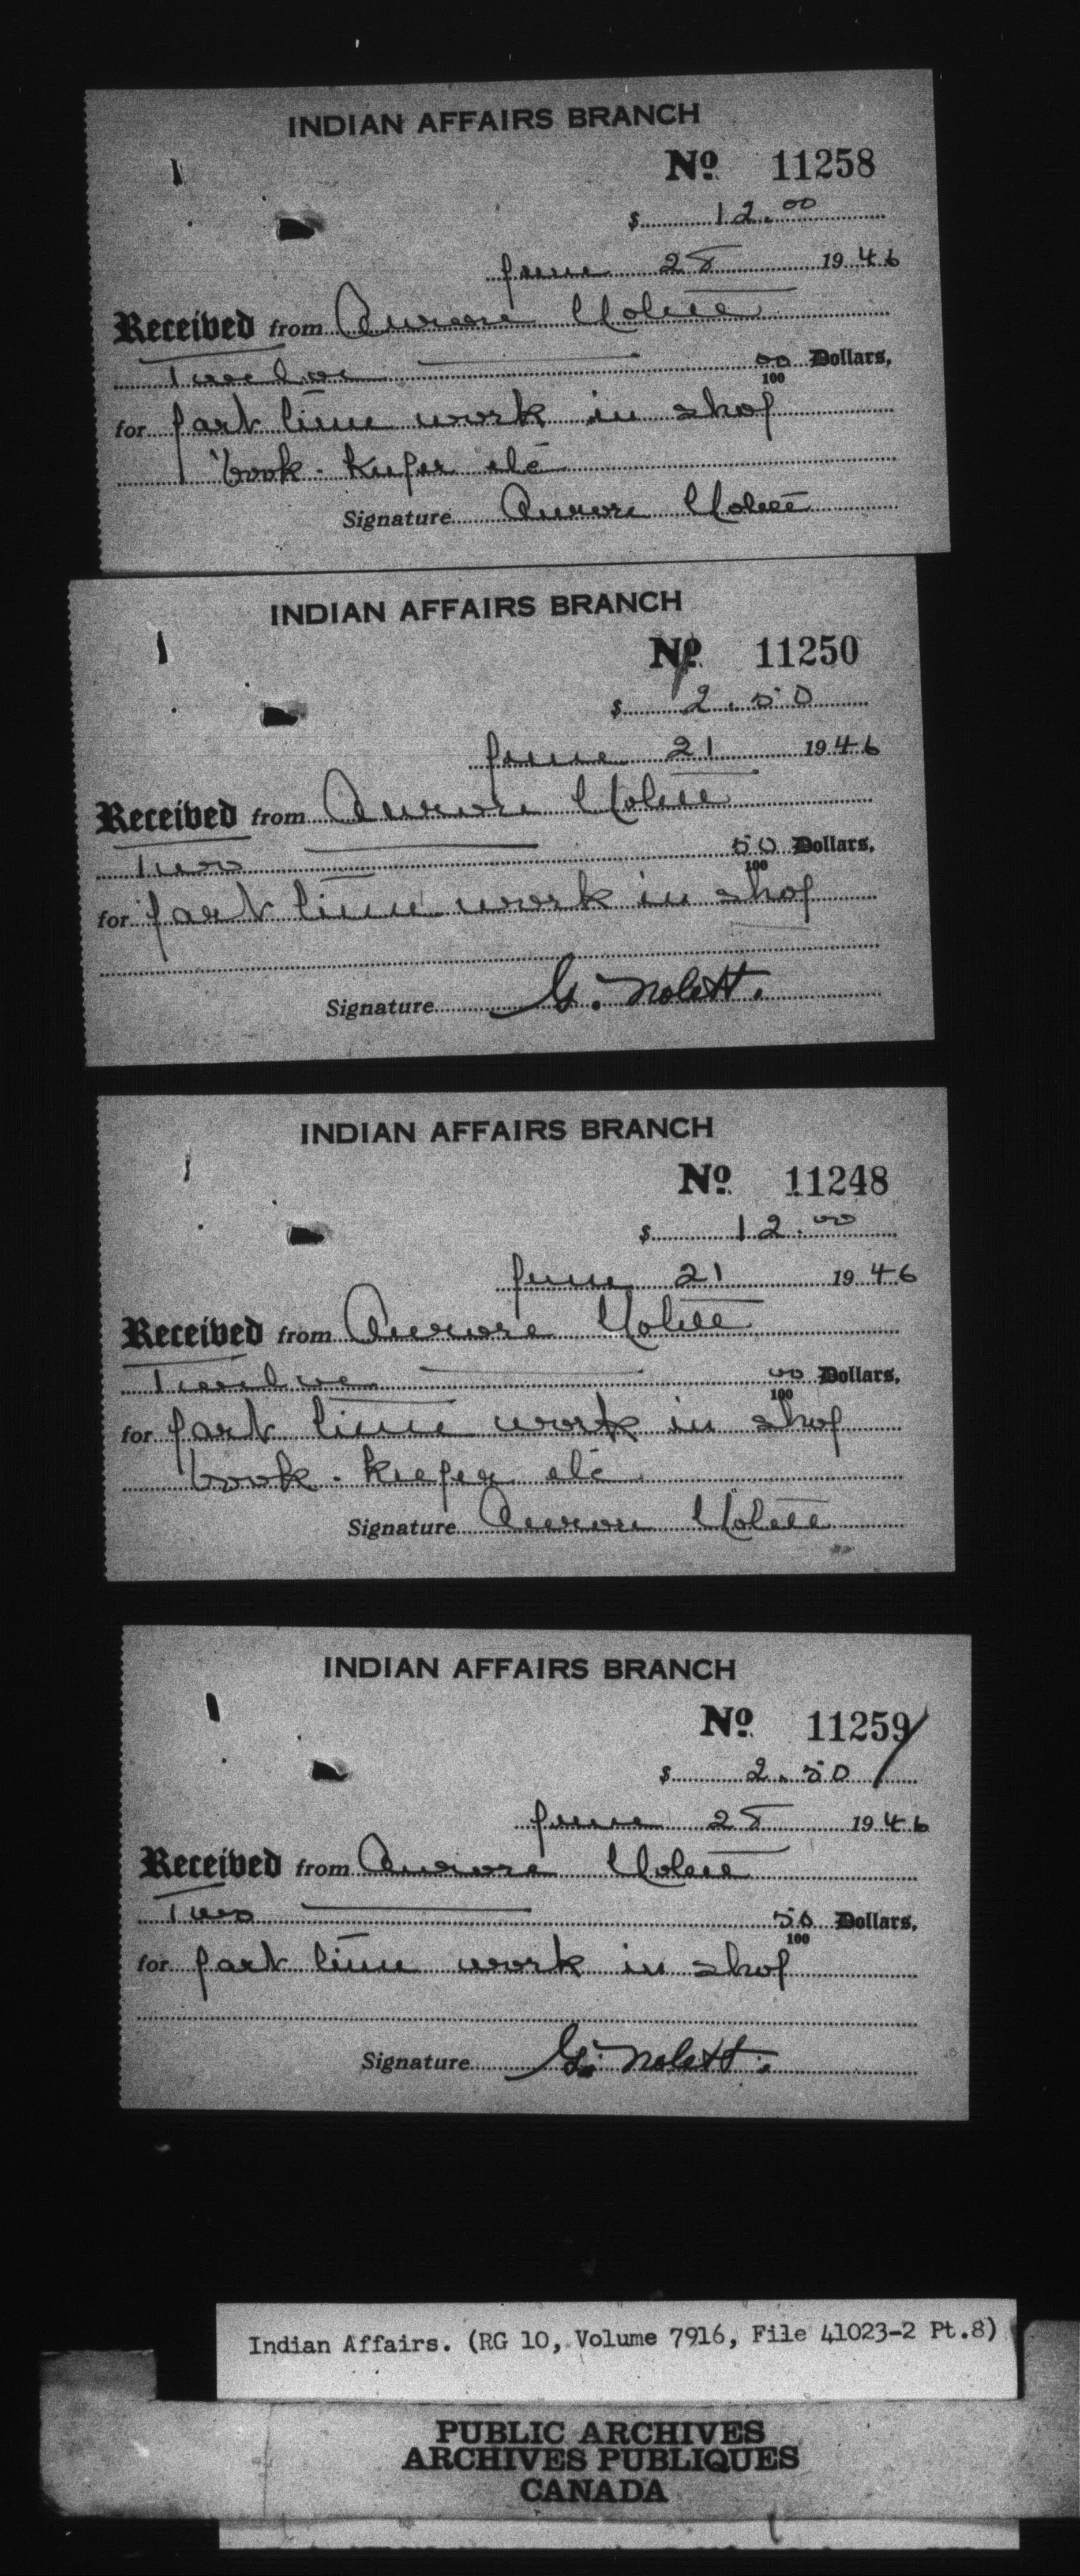 INDIAN AFFAIRS BRANCH
No 11258
$ 12.00
June 28 1946
Received from Aurore Nolett
Twelve 00/100 Dollars,
for part time work in shop
book-keeper etc
Signature Aurore Nolett
INDIAN AFFAIRS BRANCH
No 11250
$ 2.50
June 21 1946
Received from Aurore Nolett
Two 50/100 Dollars,
for part time work in shop
Signature G. Nolett.
INDIAN AFFAIRS BRANCH
No 11248
$ 12.00
June 21 1946
Received from Aurore Nolett
Twelve 00/100 Dollars,
for part time work in shop
book-keeper etc
Signature Aurore Nolett
INDIAN AFFAIRS BRANCH
No 11259
$ 2.50
June 28 1946
Received from Aurore Nolett
Two 50/100 Dollars,
for part time work in shop
Signature G. Nolett.
Indian Affairs. (RG 10, Volume 7916, File 41023-2 Pt.8)
PUBLIC ARCHIVES
ARCHIVES PUBLIQUES
CANADA